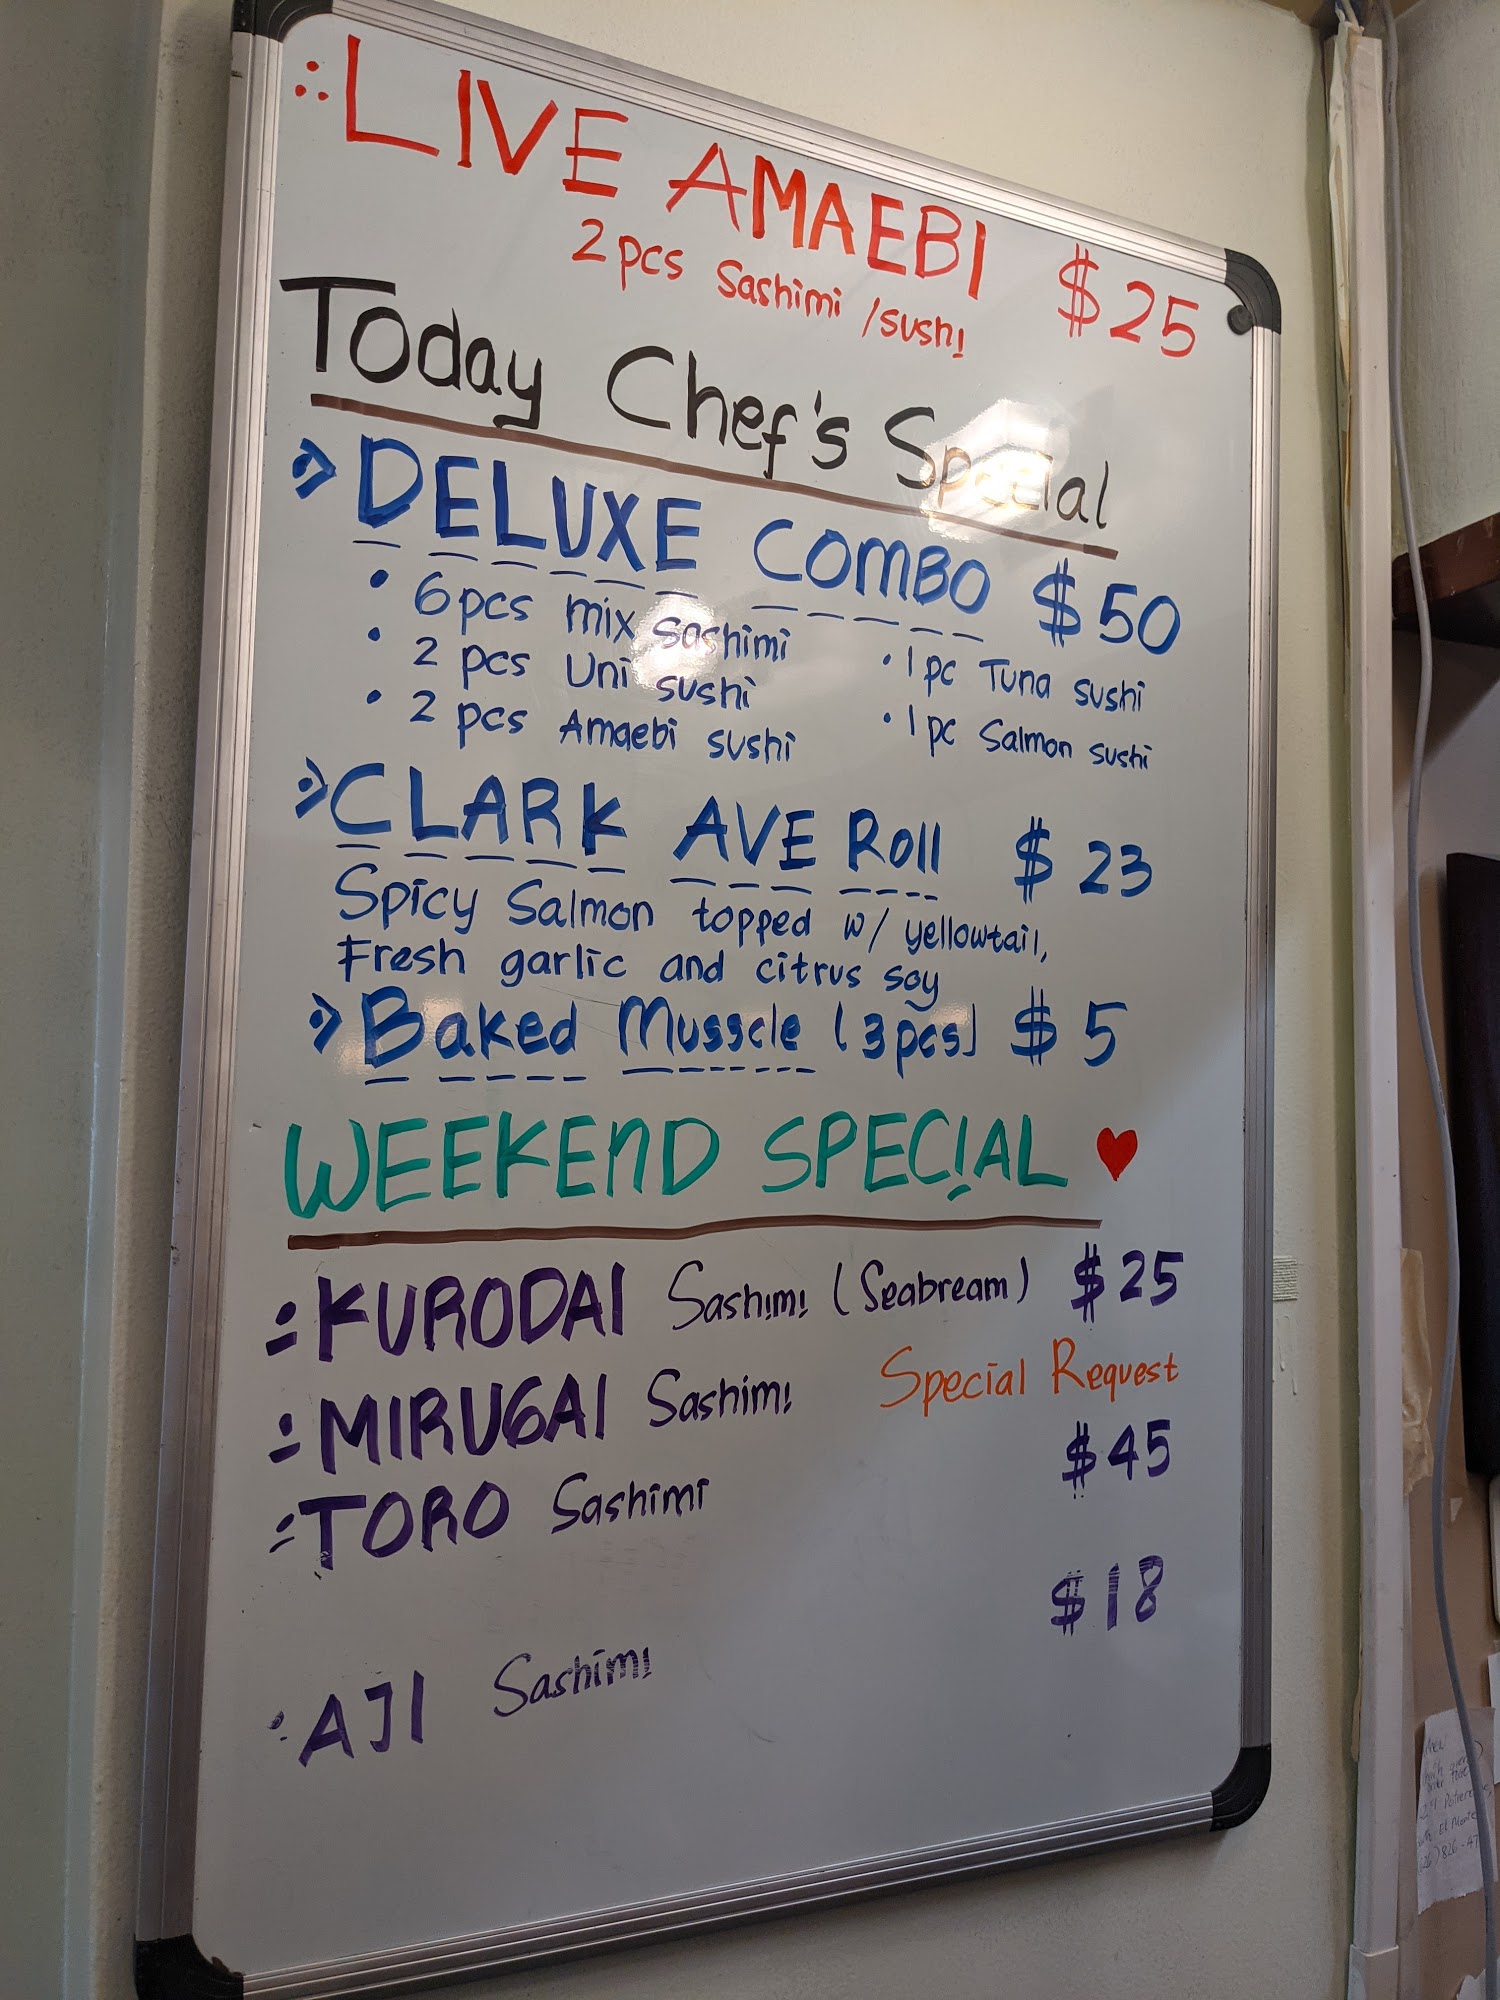 LIVE AMAEBI $25
2 pcs Sashimi /sushi
Today Chef's Special
DELUXE COMBO $50
• 6 pcs mix sashimi
• 2 pcs Uni sushi • 1 pc Tuna sushi
• 2 pcs Amaebi sushi • 1 pc Salmon sushi
CLARK AVE Roll $23
Spicy Salmon topped w/ yellowtail,
Fresh garlic and citrus soy
Baked Musscle (3pcs) $5
WEEKEND SPECIAL ♥
KURODAI Sashimi (Seabream) $25
MIRUGAI Sashimi Special Request
TORO Sashimi $45
AJI Sashimi $18